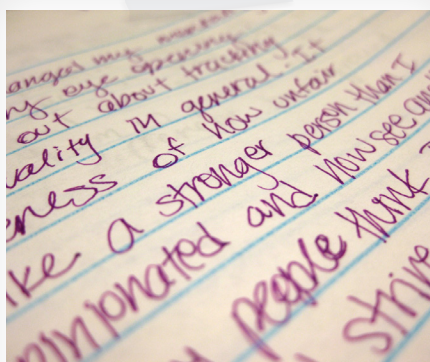 anged my
ny eye opening
out about tracking
uality in general. It
eness of how unfair
ike a stronger person than I
pinionated and now see an
people think
strive